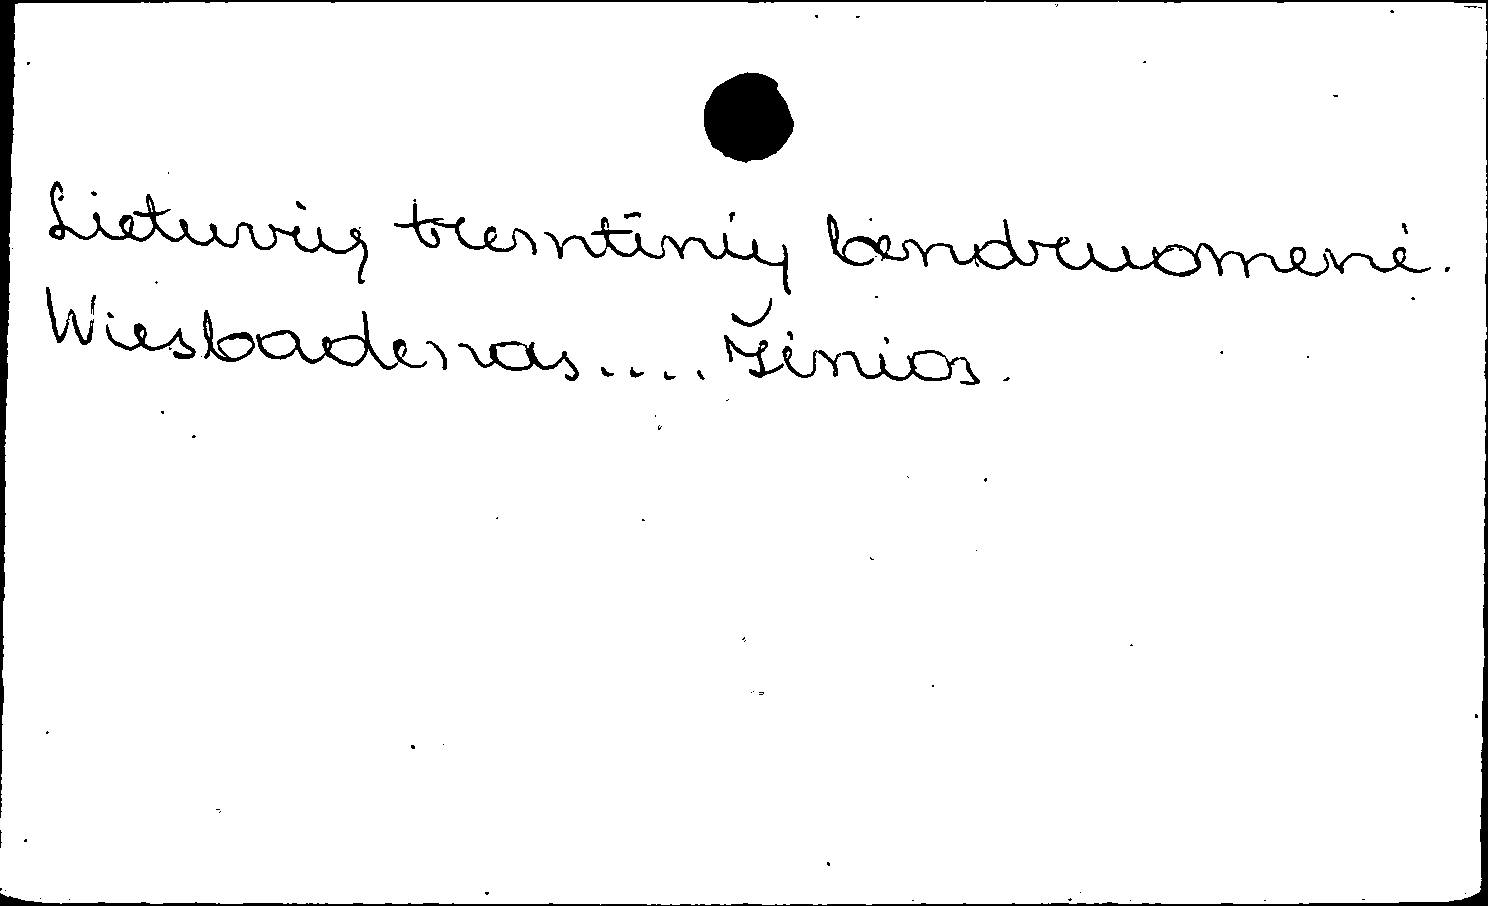 Lietuvių tremtinių bendruomenė.
Wiesbadenas.... Žinios.